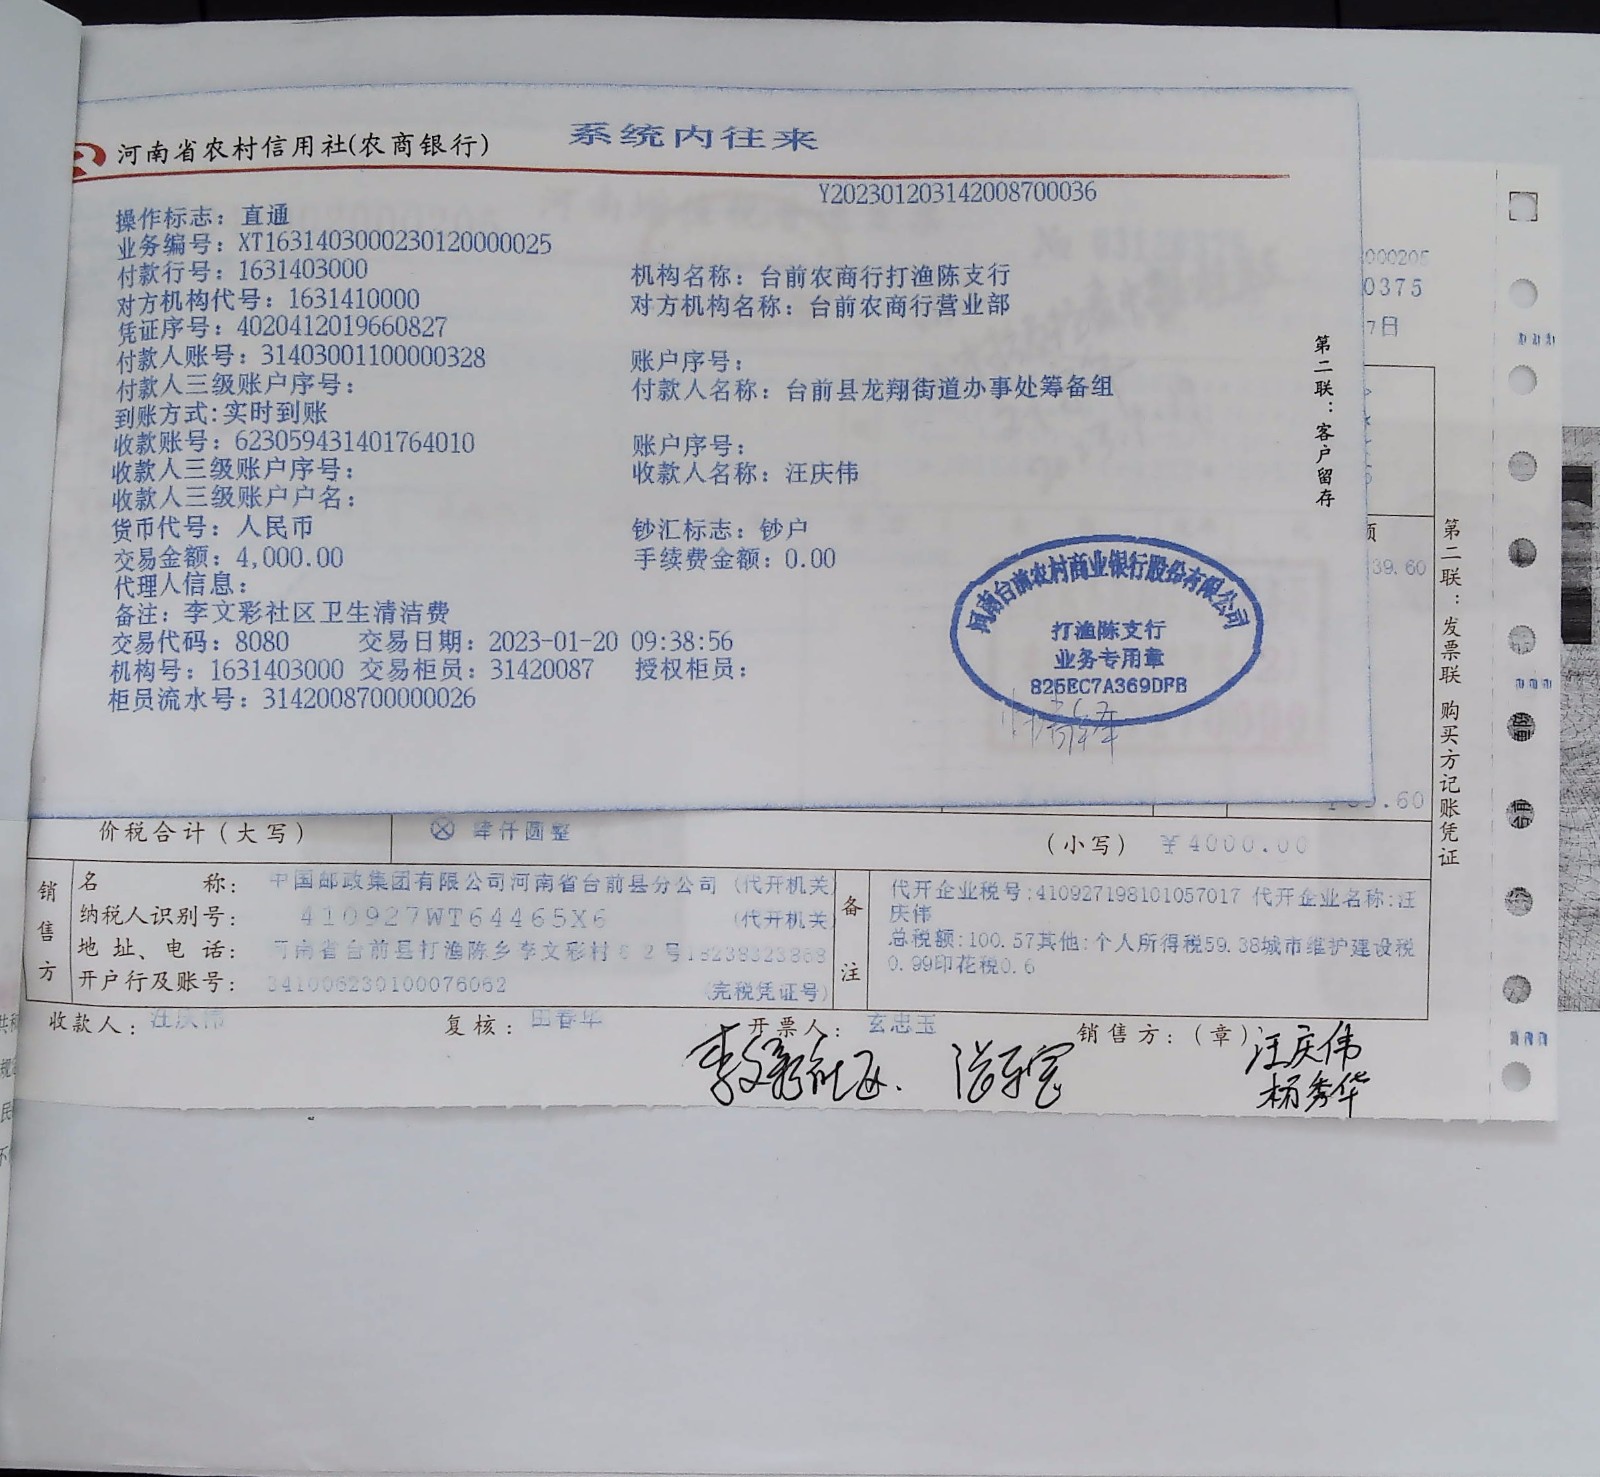 河南省农村信用社(农商银行)
系统内往来
Y202301203142008700036
操作标志：直通
业务编号：XT1631403000230120000025
付款行号：1631403000 机构名称：台前农商行打渔陈支行
对方机构代号：1631410000 对方机构名称：台前农商行营业部
凭证序号：4020412019660827
付款人账号：31403001100000328 账户序号：
付款人三级账户序号： 付款人名称：台前县龙翔街道办事处筹备组
到账方式:实时到账
收款账号：623059431401764010 账户序号：
收款人三级账户序号： 收款人名称：汪庆伟
收款人三级账户户名：
货币代号：人民币 钞汇标志：钞户
交易金额：4,000.00 手续费金额：0.00
代理人信息：
备注：李文彩社区卫生清洁费
交易代码：8080 交易日期：2023-01-20 09:38:56
机构号：1631403000 交易柜员：31420087 授权柜员：
柜员流水号：3142008700000026
第二联：客户留存
河南台前农村商业银行股份有限公司
打渔陈支行
业务专用章
825EC7A369DFB
000205
0375
7日
额
39.60
39.60
第二联：发票联 购买方记账凭证
价税合计（大写） ⊗ 肆仟圆整 （小写） ￥4000.00
销售方
名 称： 中国邮政集团有限公司河南省台前县分公司 (代开机关
纳税人识别号： 410927WT64465X6 (代开机关
地 址、电 话： 河南省台前县打渔陈乡李文彩村62号18238323868
开户行及账号： 341006230100076062 (完税凭证号)
备注
代开企业税号:410927198101057017 代开企业名称:汪
庆伟
总税额:100.57其他:个人所得税59.38城市维护建设税
0.99印花税0.6
收款人： 汪庆伟 复核： 田春华 开票人： 玄忠玉 销售方：（章）
李文彩社区.
汪庆伟
杨秀华